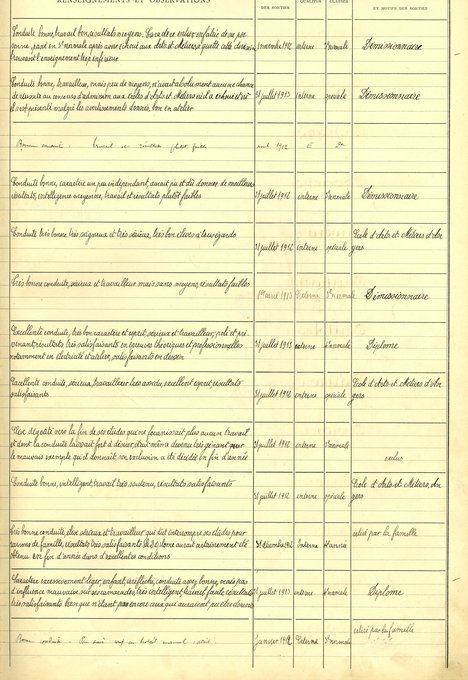 RENSEIGNEMENTS ET OBSERVATIONS DES SORTIES QUALITÉS CLASSES ET MOTIFS DES SORTIES
Conduite bonne, travail bon, résultats moyens. Caractère
sonne, passé en 3e normale après avoir échoué aux Arts et Métiers
trouvant l'enseignement trop inférieur
1 novembre 1912 interne 3e normale Démissionnaire
Conduite bonne, travailleur, mais peu de moyens, n'ayant absolument aucune chance
de réussite au concours d'admission aux écoles d'Arts et Métiers où il a échoué
s'est présenté malgré les avertissements donnés, bon en atelier
31 juillet 1913 interne spéciale Démissionnaire
Bonne conduite. Travail et résultats plutôt faibles
avril 1912 E 2e
Conduite bonne, caractère un peu indépendant, aurait pu et dû donner de meilleurs
résultats, intelligence moyenne, travail et résultats plutôt faibles
31 juillet 1912 interne 3e normale Démissionnaire
Conduite très bonne, très soigneux et très sérieux, très bon élève à tous égards
31 juillet 1912 interne spéciale École d'Arts et Métiers d'An
gers
Très bonne conduite, sérieux et travailleur mais sans moyens, résultats faibles
1er avril 1913 Externe 3e normale Démissionnaire
Excellente conduite, très bon caractère et esprit, sérieux et travailleur, poli et pré-
venant, résultats très satisfaisants en épreuves théoriques et professionnelles
notamment en électricité et atelier, satisfaisants en dessin
31 juillet 1913 externe normale Diplome
Excellente conduite, sérieux, travailleur très assidu, excellent esprit, résultats
satisfaisants
31 juillet 1912 interne spéciale École d'Arts et Métiers d'An
gers
Élève dégoûté vers la fin de ses études qui ne fournissait plus aucun travail
et dont la conduite laissait fort à désirer, était même devenu très gênant pour
le mauvais exemple qu'il donnait, son exclusion a été décidée en fin d'année
31 juillet 1912 interne 3e normale
exclus
Conduite bonne, intelligent, travail très soutenu, résultats satisfaisants
31 juillet 1912 interne spéciale École d'Arts et Métiers, An
gers
Très bonne conduite, élève sérieux et travailleur qui dut interrompre ses études pour
raisons de famille, résultats très satisfaisants, le diplôme aurait certainement été
obtenu en fin d'année dans d'excellentes conditions
31 décembre 1912 Interne 4e année
retiré par la famille
Caractère excessivement léger, enfant, irréfléchi, conduite assez bonne, mais pas
d'influence mauvaise sur ses camarades, très intelligent, travail facile, résultats
très satisfaisants bien que n'étant pas encore ceux qui auraient pu être donnés
31 juillet 1913 interne normale Diplome
retiré par la famille
Bonne conduite.
Janvier 1912 Externe 3e normale